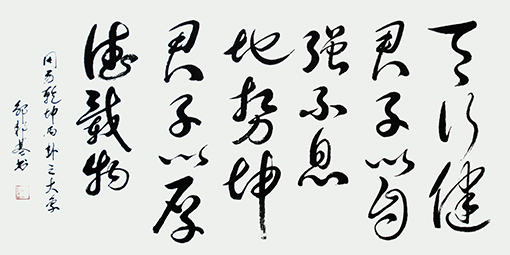 天行健
君子以自
强不息
地势坤
君子以厚
德載物
周易乾坤两卦之大象
书